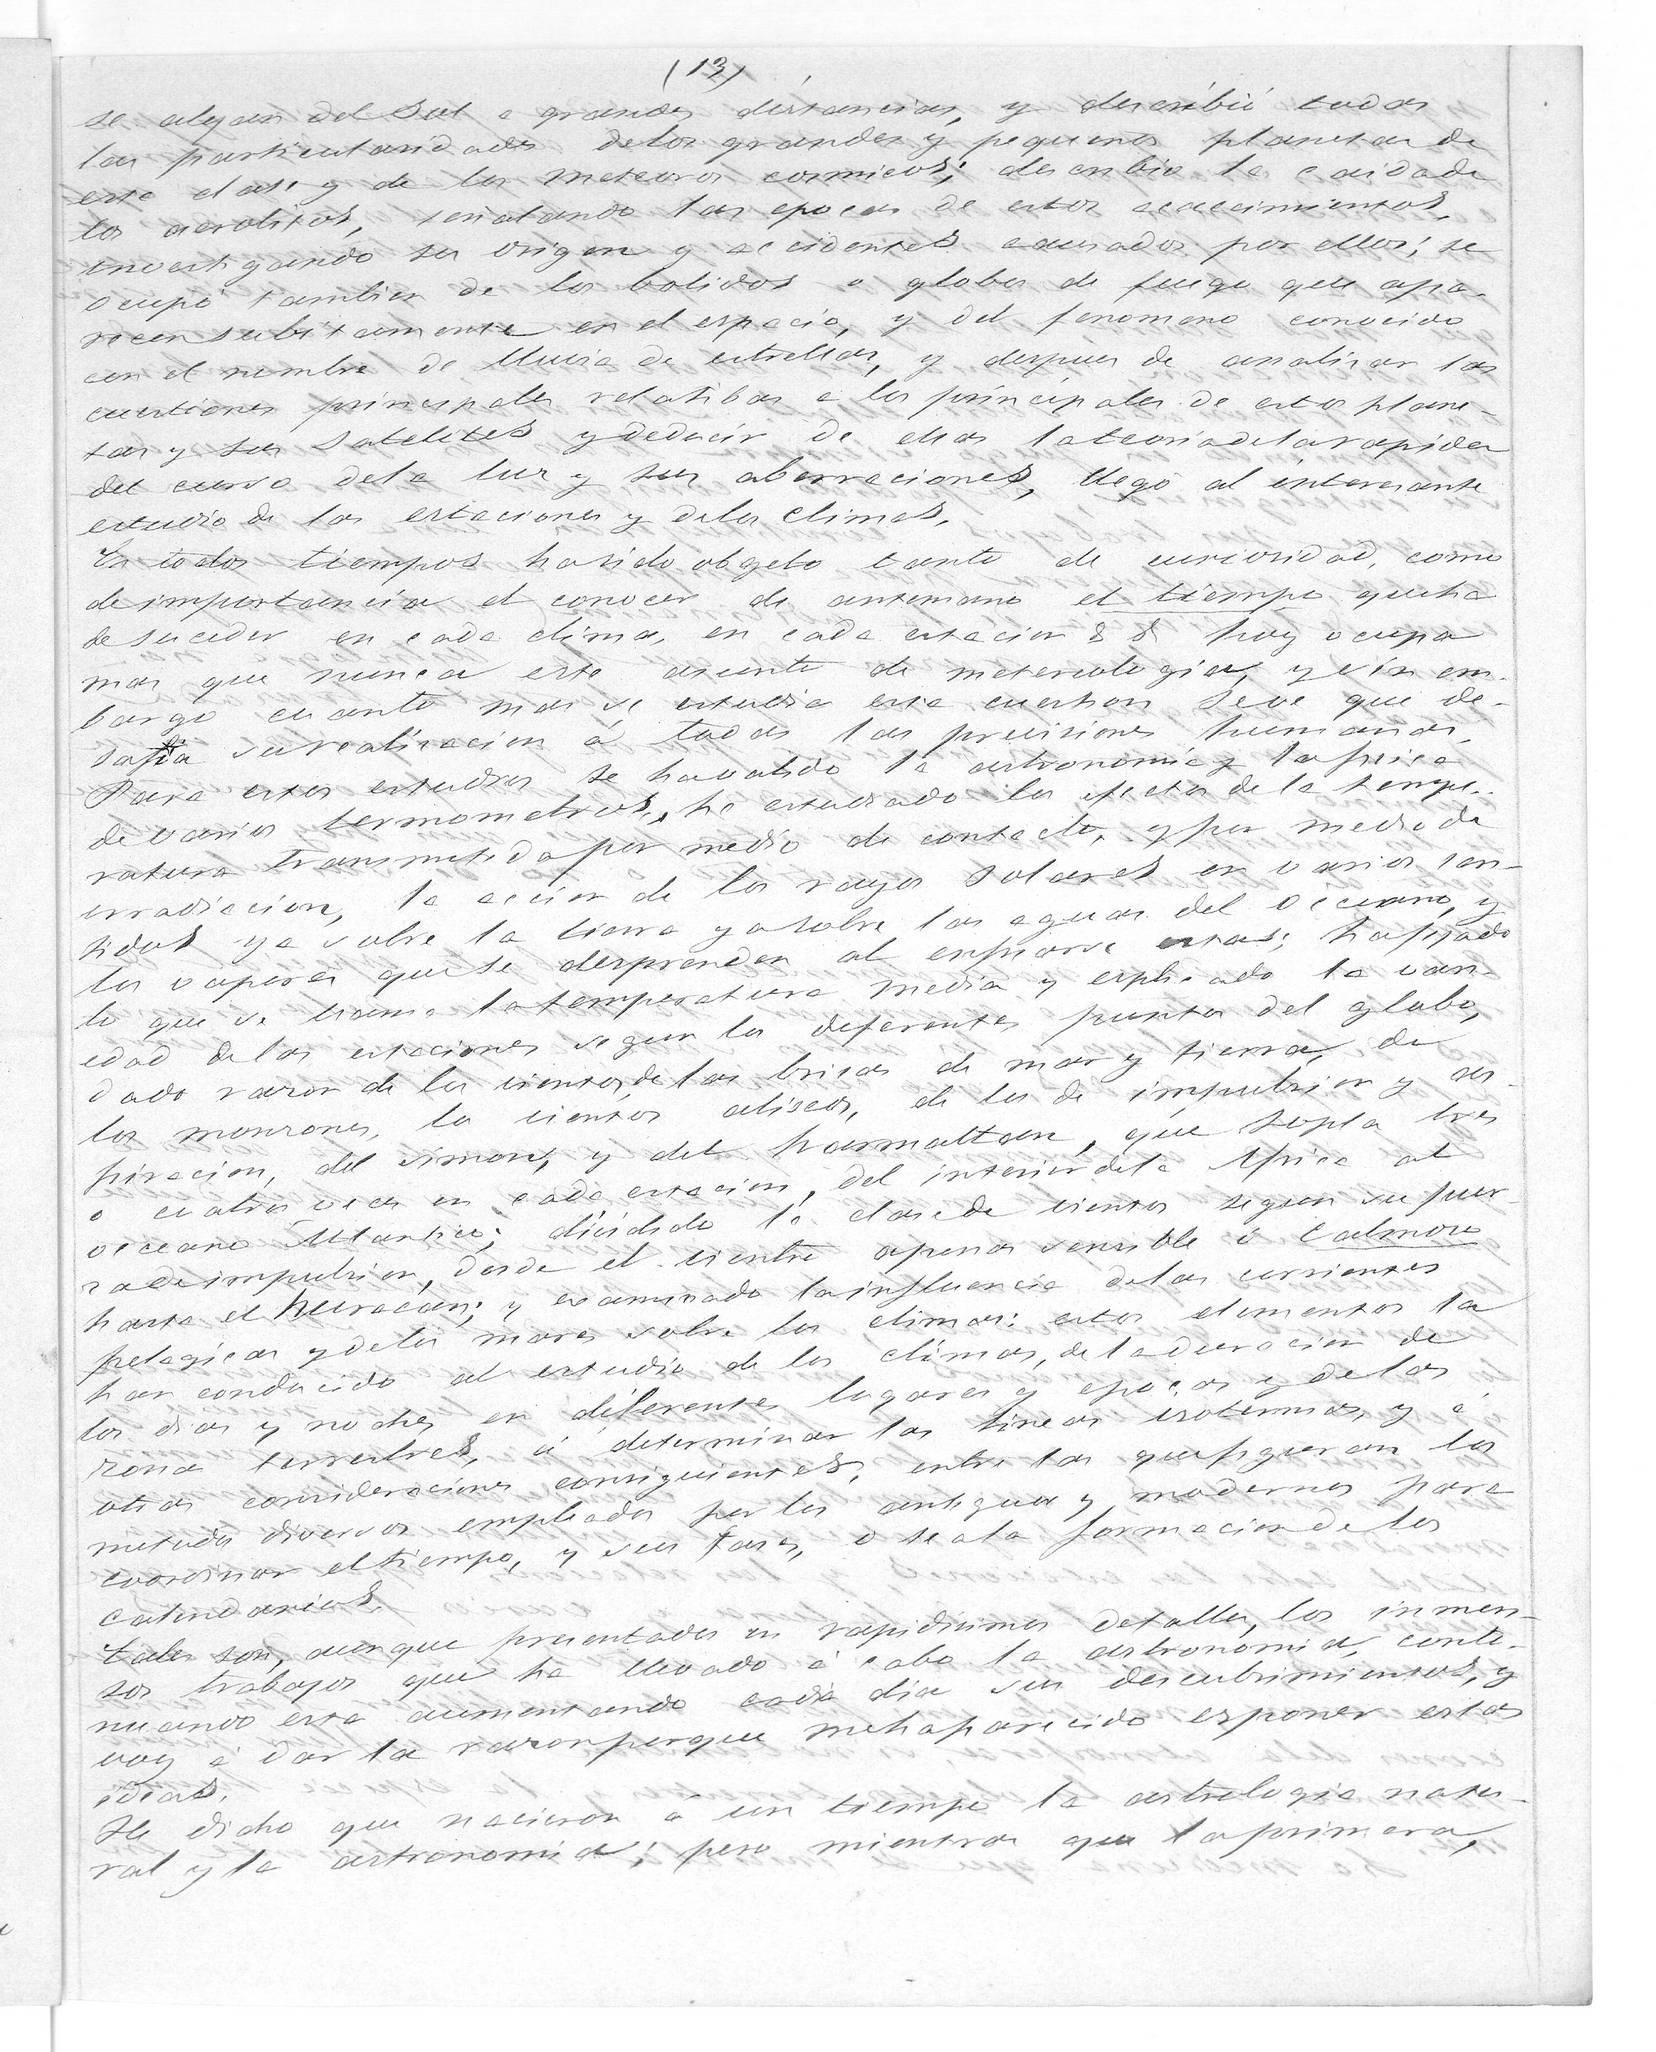 (13)
se alejan del Sol a grandes distancias, y describió todas
las particularidades delos grandes y pequenos planetas de
esta clase y de los meteoros cosmicos; describio la caidade
los aerolitos, señalando las epocas de estos acaecimientos,
investigando su origen y accidentes causados por ellos; se
ocupó tambien de los bolidos o globos de fuego que apa-
recen subitamente en el espacio, y del fenomeno conocido
con el nombre de lluvia de estrellas, y despues de analizar las
cuestiones principales relatibas a los principales de estos plane-
tas y sus satelites y deducir de ellas lateoria delarapidez
del curso dela luz y sus aberraciones, llegó al interesante
estudio de las estaciones y delos climas.
En todos tiempos hasido obgeto tanto de curiosidad, como
deimportancia el conocer de antemano el tiempo queha
desuceder en cada clima, en cada estacion & & hoy ocupa
mas que nunca este asunto de metereologia, y sin em-
bargo cuanto mas se estudia esta cuestion seve que de-
safia surealizacion á todas las previsiones humanas.
Para estos estudios se havalido la astronomia y lafisica
de varios termometros, ha estudiado los efectos de la tempe-
ratura transmitida por medio de contacto, y por medio de
irradiacion, la accion de los rayos solares en varios sen-
tidos ya sobre la tierra yasobre las aguas del occeano, y
los vapores quese desprenden al enfriarse estas; hafijado
lo que se llama latemperatura media y esplicado la vari-
edad de las estaciones segun los diferentes puntos del globo,
dado razon de los vientos, de las brisas de mar y tierra, de
los monzones, los vientos aliseos, de los de impulsion y as-
piracion, del simoun, y del harmattan, que sopla tres
o cuatro veces en cada estacion, del interior dela Africa al
occeano Atlantico; dividido la clase de vientos segun su fuer-
zadeimpulsion, desde el viento apenas sensible ó Calmoso
hasta el huracan; y examinado lainfluencia delas corrientes
pelagicas y delos mares sobre los climas: estos elementos la
han conducido al estudio de los climas, deladuracion de
los dias y noches en diferentes lugares y epocas y delas
zonas terrestres, á determinar las lineas isotermas, y á
otras consideraciones consiguientes, entre las quefiguran los
metodos diversos empleados por los antiguos y modernos para
coordinar eltiempo, y sus fases, o sea la formacion de los
calendarios.
Tales son, aunque presentados en rapidisimos detalles, los inmen-
sos trabajos que ha llevado á cabo la astronomia, conti-
nuando esta aumentando cada dia sus descubrimientos, y
voy á dar la razon porque mehaparecido esponer estas
ideas.
He dicho que nacieron á un tiempo la astrologia natu-
ral y la astronomia; pero mientras que laprimera,